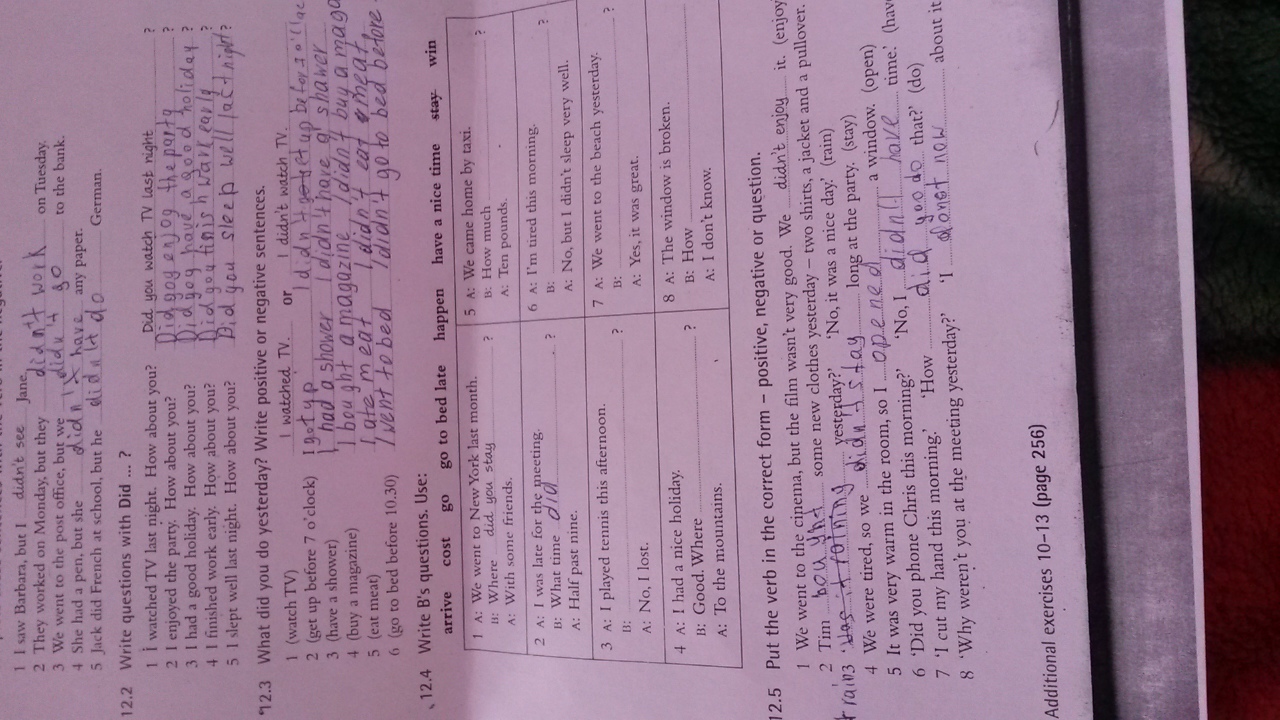 1 I saw Barbara, but I didn't see Jane
2 They worked on Monday, but they didn't work on Tuesday.
3 We went to the post office, but we didn't go to the bank.
4 She had a pen, but she didn't have any paper.
5 Jack did French at school, but he didn't do German.
12.2 Write questions with Did ... ?
1 I watched TV last night. How about you? Did you watch TV last night ?
2 I enjoyed the party. How about you? Did you enjoy the party ?
3 I had a good holiday. How about you? Did you have a good holiday ?
4 I finished work early. How about you? Did you finish work early ?
5 I slept well last night. How about you? Did you sleep well last night ?
12.3 What did you do yesterday? Write positive or negative sentences.
1 (watch TV) I watched TV. or I didn't watch TV.
2 (get up before 7 o'clock) I got up I didn't get up before
3 (have a shower) I had a shower I didn't have a shower
4 (buy a magazine) I bought a magazine I didn't buy a maga
5 (eat meat) I ate meat I didn't eat meat
6 (go to bed before 10.30) I went to bed I didn't go to bed before
12.4 Write B's questions. Use:
arrive cost go go to bed late happen have a nice time stay win
1 A: We went to New York last month.
B: Where did you stay ?
A: With some friends.
2 A: I was late for the meeting.
B: What time did ?
A: Half past nine.
3 A: I played tennis this afternoon.
B: ?
A: No, I lost.
4 A: I had a nice holiday.
B: Good. Where ?
A: To the mountains.
5 A: We came home by taxi.
B: How much ?
A: Ten pounds.
6 A: I'm tired this morning.
B: ?
A: No, but I didn't sleep very well.
7 A: We went to the beach yesterday.
B: ?
A: Yes, it was great.
8 A: The window is broken.
B: How
A: I don't know.
12.5 Put the verb in the correct form – positive, negative or question.
1 We went to the cinema, but the film wasn't very good. We didn't enjoy it. (enjoy
2 Tim bought some new clothes yesterday – two shirts, a jacket and a pullover.
3 'Was it raining yesterday?' 'No, it was a nice day.' (rain)
4 We were tired, so we didn't stay long at the party. (stay)
5 It was very warm in the room, so I opened a window. (open)
6 'Did you phone Chris this morning?' 'No, I didn't have time.' (have
7 'I cut my hand this morning.' 'How did you do that?' (do)
8 'Why weren't you at the meeting yesterday?' 'I about it
Additional exercises 10–13 (page 256)